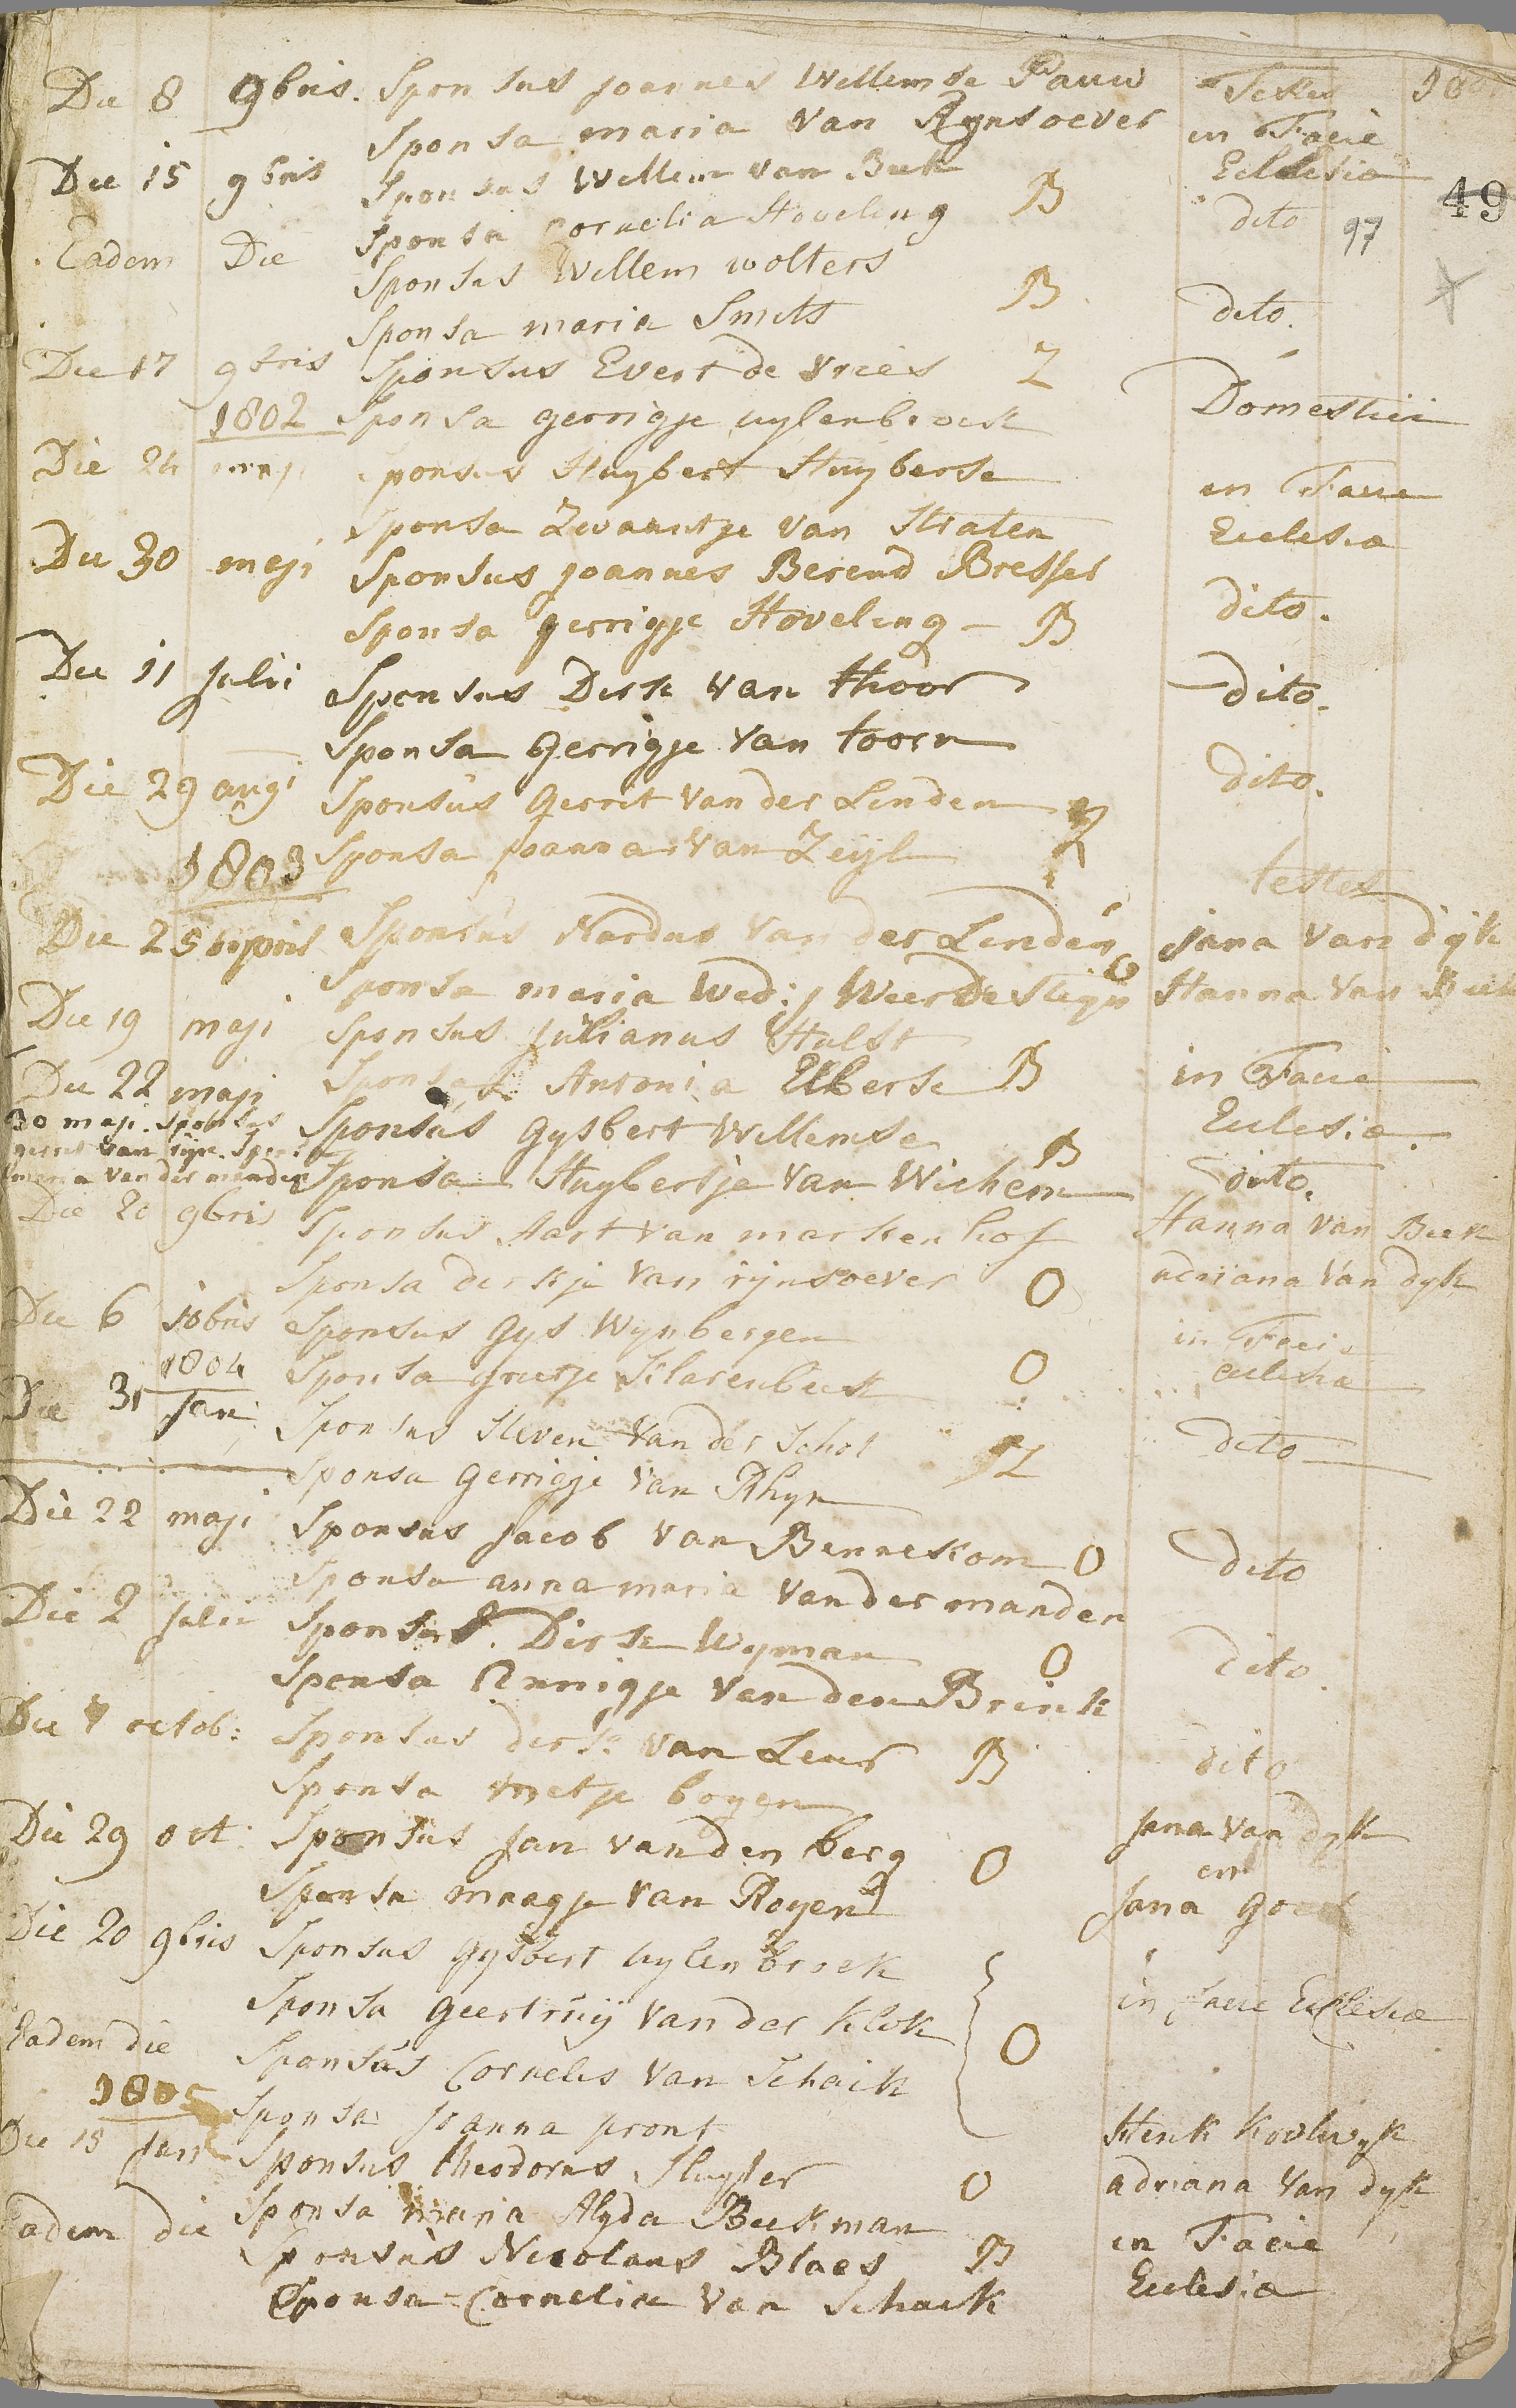 Die 8 9bris. Sponsus joannes Willemse Pauw Testes
Sponsa maria van Rynsoever in Facie
Die 15 9bris Sponsus Willem van Beek B Ecclesia
49
Sponsa Cornelia Hoveling dito 97
Eadem Die Sponsus Willem wolters B
Sponsa maria Smits dito.
Die 17 9bris Sponsus Evert de Vries Z
1802 Sponsa gerrigje uylenbroek Domestici
Die 24 Sponsus Huybert Huyberse in Facie
Sponsa Zwaantje van Straten Ecclesia
Die 30 meji Sponsus joannes Berend Bresser
Sponsa gerrigje Hoveling - B dito.
Die 11 julii Sponsus Dirk van thoor dito.
Sponsa Gerrigje van toorn
Die 29 augi Sponsus Gerrit van der Linden Z dito.
1803 Sponsa joanna van Zeijl
testes
Die 25 april Sponsus Nardus van der Linden jana van dijk
Sponsa maria Wed: j Weerdesteijn Hanna van Beek
Die 19 maji Sponsus julianus Hulst
Sponsa Antonia Elberse B in Facie
Die 22 maji Sponsus Gysbert Willemse B Eclesia.
30 maji. Sponsus
gerret van rijn. Sponsa
maria van der mander Sponsa Huybertje van Wichem dito.
Die 20 9bris Sponsus Aart van markenhof Hanna van Beek
Sponsa dirkje van rijnsoever O adriana van dyk
Die 6 10bris Sponsus Gys Wynbergen in Facie
1804 Sponsa grietje Klarenbeek O eclesia
Die 31 Jan: Sponsus Steven van der Schol Z dito
Sponsa Gerrigje van Rhyn
Die 22 maji Sponsus jacob van Bennekom O dito
Sponsa anna maria van der mander
Die 2 julii Sponsus. Dirk Wyman O dito
Sponsa Annigje van den Brink
Die 7 octob: Sponsus dirk van Leur B dito
Sponsa metje boyen
Die 29 oct: Sponsus jan van den berg O jana van dyk
en
Sponsa maagje van Royen jana
Die 20 9bris Sponsus Gysbert uylenbroek
Sponsa Geertruij van der klok in facie Ecclesia
Eadem die Sponsus Cornelis van Schaik O
1805 Sponsa joanna pront
Die 15 jan Sponsus theodorus Sluyter O Henk Koolwyk
Sponsa maria Alyda Beekman adriana van dyk
Eadem die Sponsus Nicolaus Blaes B in Facie
Sponsa Cornelia van Schaik Eclesia